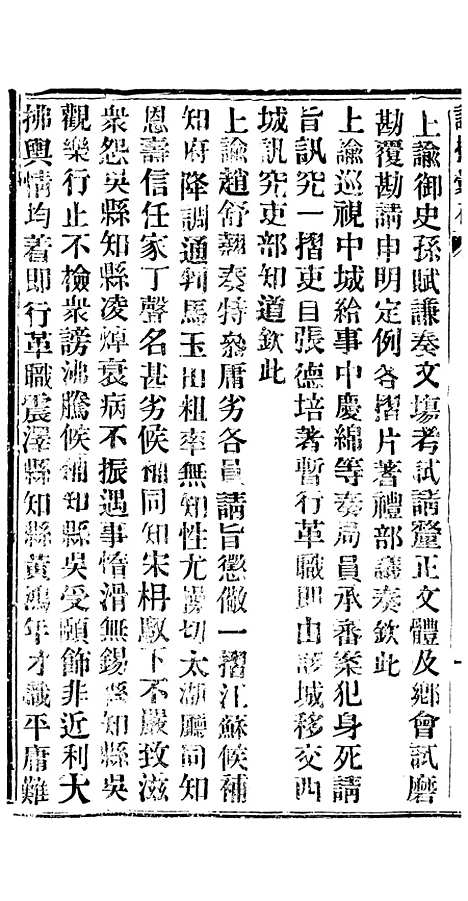 上諭御史孫賦謙奏文塲考試請釐正文體及鄉會試磨
勘覆勘請申明定例各摺片著禮部議奏欽此
上諭巡視中城給事中慶綿等奏局員承審案犯身死請
旨訊究一摺吏目張德培著暫行革職即由該城移交西
城訊究吏部知道欽此
上諭趙舒翹奏特叅庸劣各員請旨懲儆一摺江蘇候補
知府降調通判馬玉由粗率無知性尤貪切太湖廳同知
恩壽信任家丁聲名甚劣候補同知宋枏馭下不嚴致滋
衆怨吳縣知縣凌焯衰病不振遇事惰滑無錫縣知縣吳
觀樂行止不檢衆謗沸騰候補知縣吳受頤飾非近利大
拂輿情均着即行革職震澤縣知縣黃鴻年才識平庸難